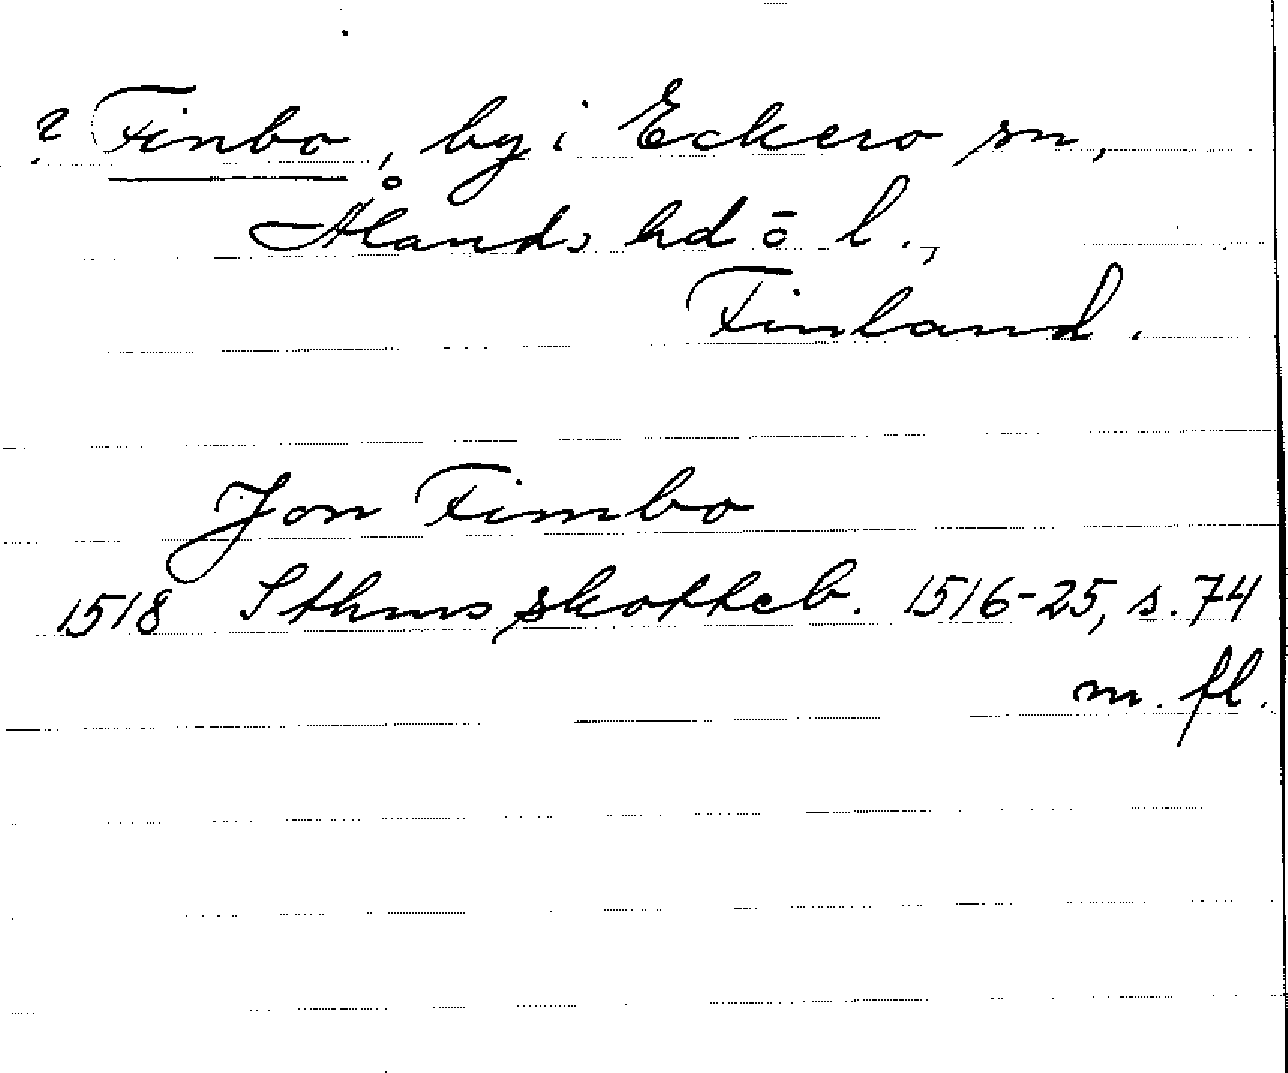 ? Finbo, by i Eckerö sn,
Ålands hd o l.,
Finland.
Jon Fimbo
1518 Sthms skotteb. 1516-25, s. 74
m. fl.